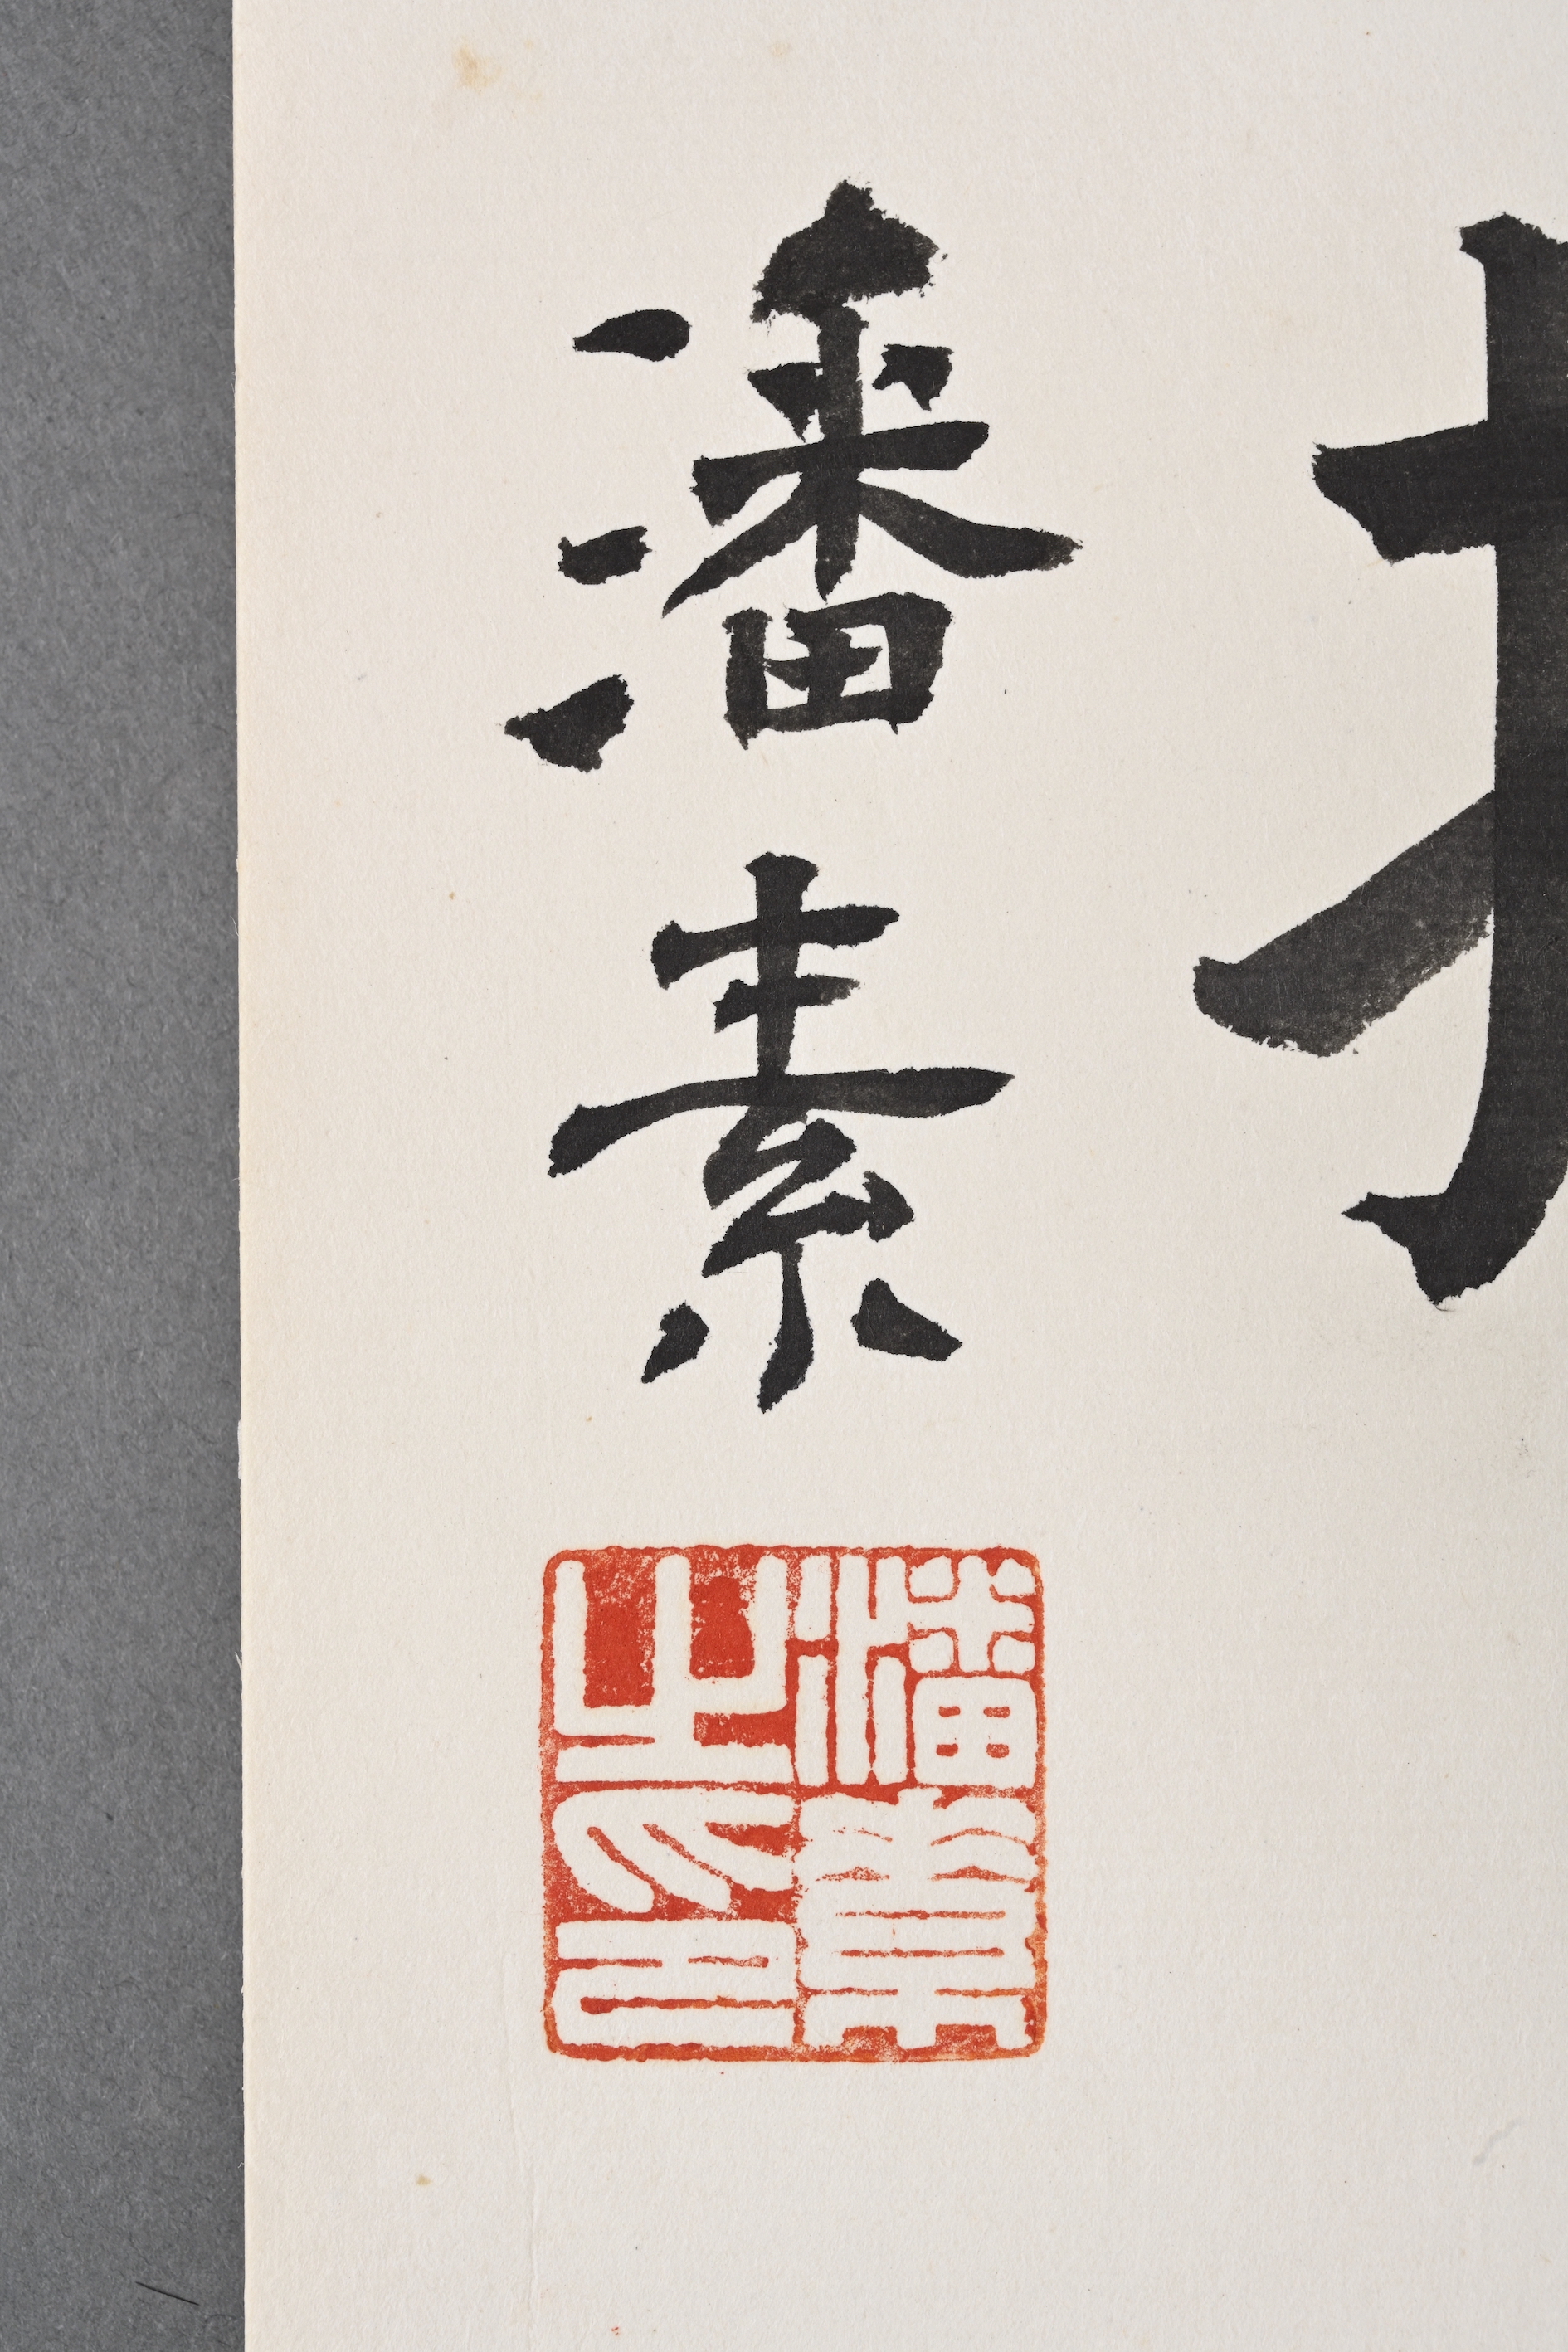 潘素
潘素之印